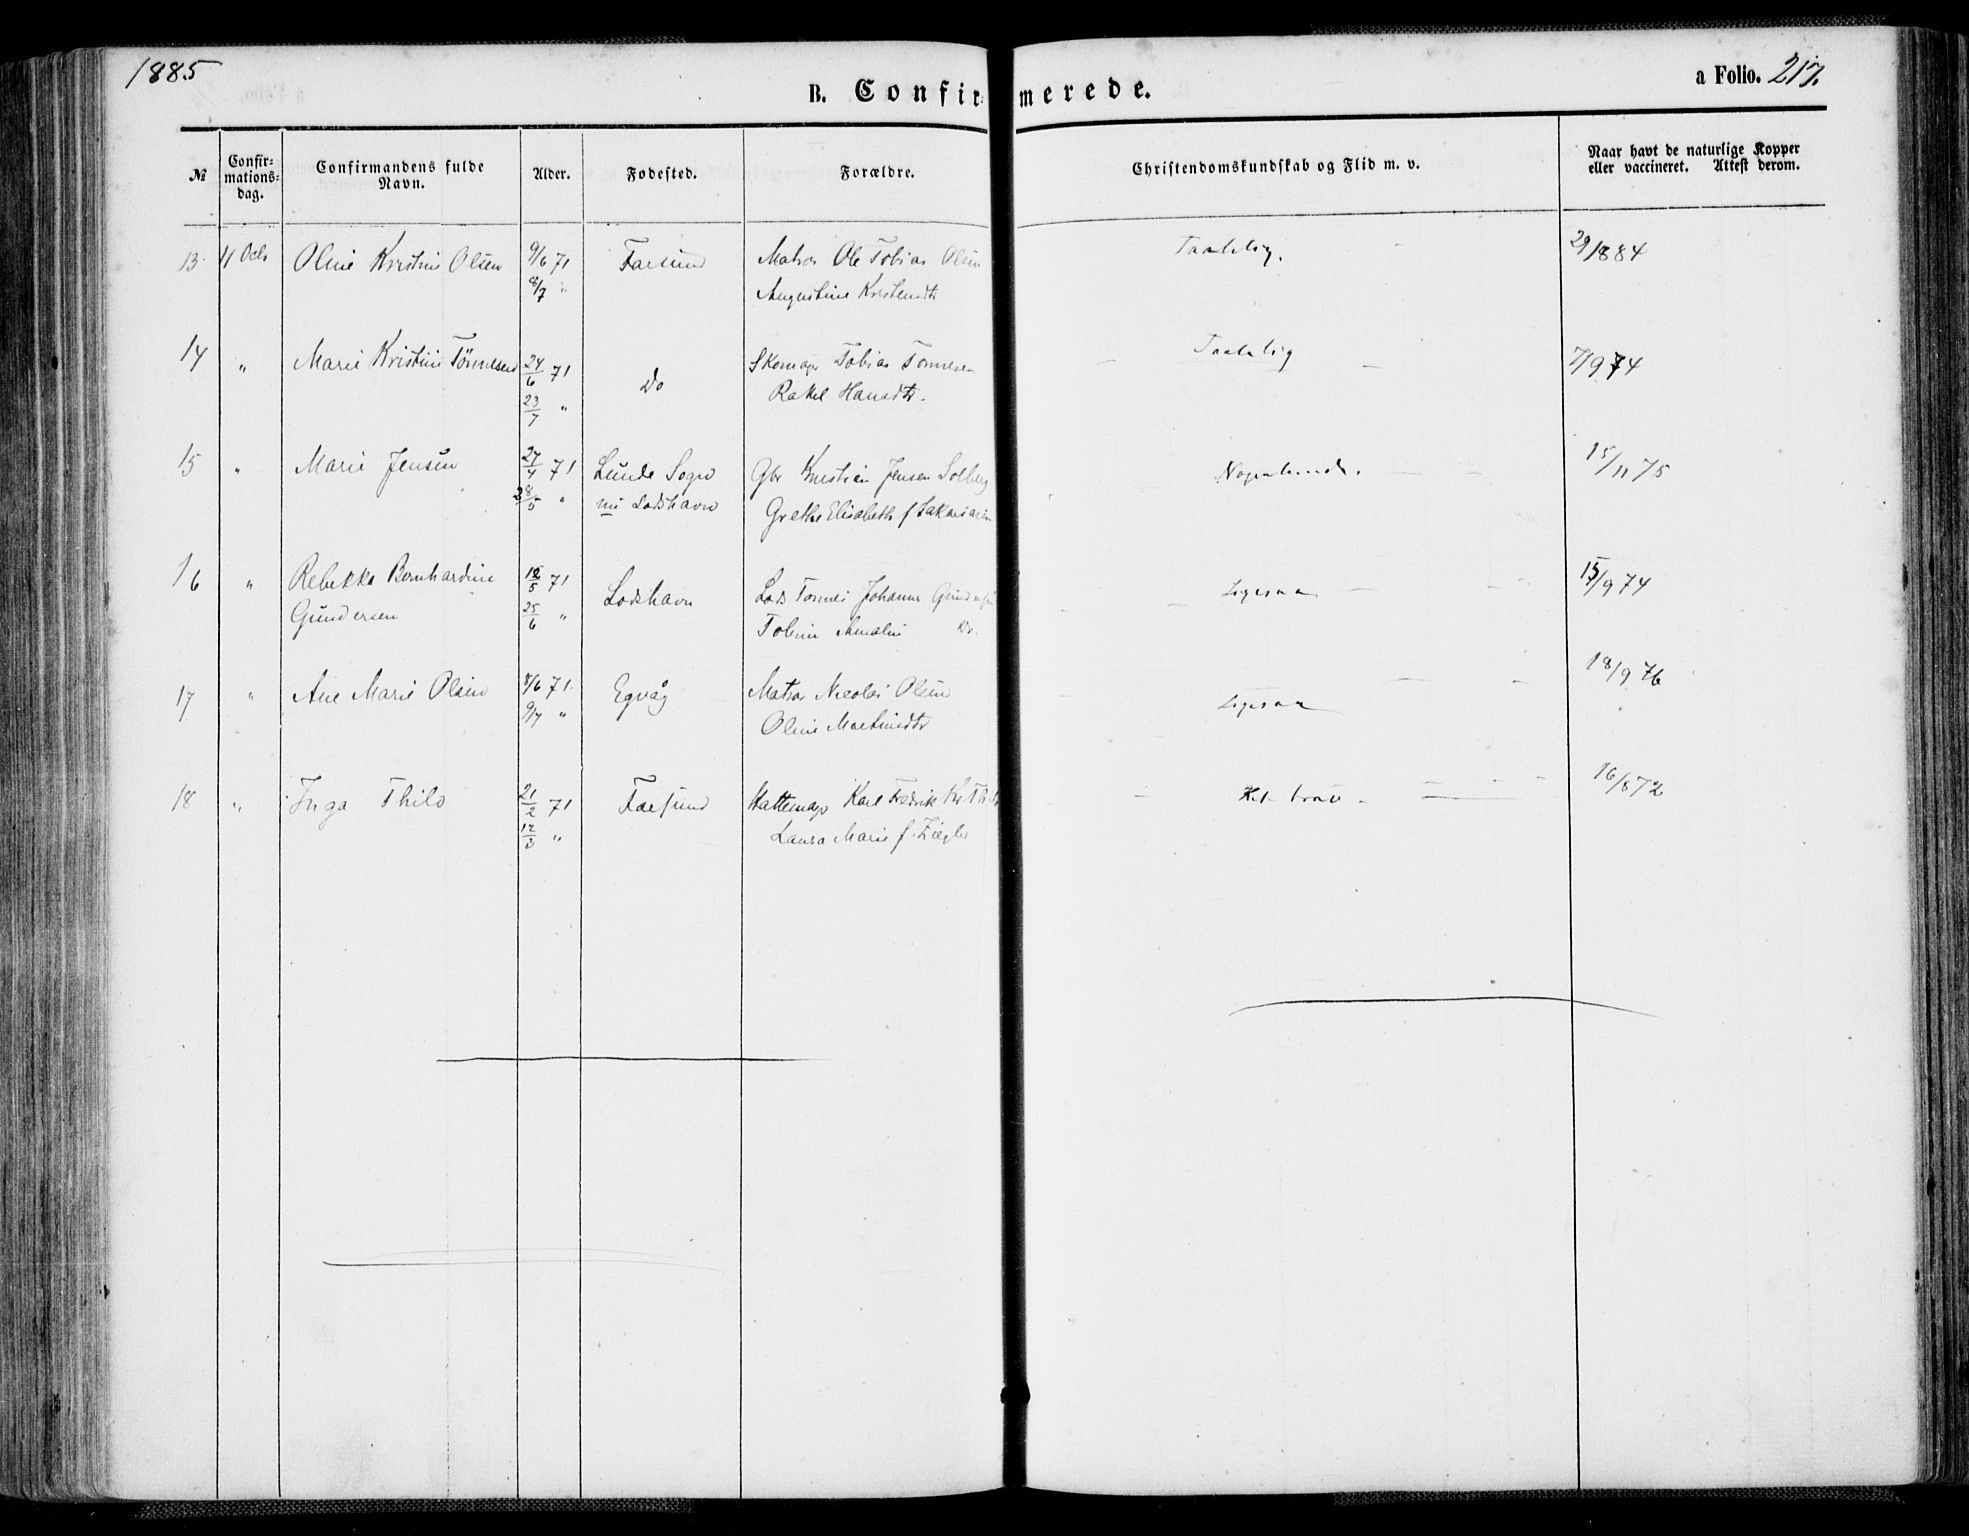 1885
B. Confirmerede.
a Folio. 217.
№
Confir-
mations-
dag.
Confirmandens fulde
Navn.
Alder.
Fødested.
Forældre.
Christendomskundskab og Flid m. v.
Naar havt de naturlige Kopper
eller vaccineret. Attest derom.
13. 11 Octr Oline Kristine Olsen 9/6 71 Farsund Matros Ole Tobias Olsen Taalelig. 29/8 84
8/7 " Augustine
14 " Marie Kristine Tönnesen 24/6 71 Do Skomager Tobias Tönnesen Taalelig 7/9 74
23/7 " Rakel Hansdtr.
15 " Marie Jensen 27/4 71 Lunde Sogn Gbr Kristian Jensen Solberg Nogenlunde. 15/11 75
28/5 " nu Lodshavn Grethe Elisabeth f Sakariasen
16 " Rebekka Bernhardine 18/5 71 Lodshavn Lods Tönnes Johannes Gundersen Ligesaa 15/9 74
Gundersen 25/6 " Tobine Amalie Do.
17 " Ane Marie Olsen 8/6 71 Egvåg Matros Nicolai Olsen Ligesaa 18/9 76
9/7 " Oline Martinsdtr
18 " Inga Thilo 21/2 71 Farsund Hattemager Karl Fredrik Thilo 16/8 72
12/3 " Laura Marie f. Ziegler